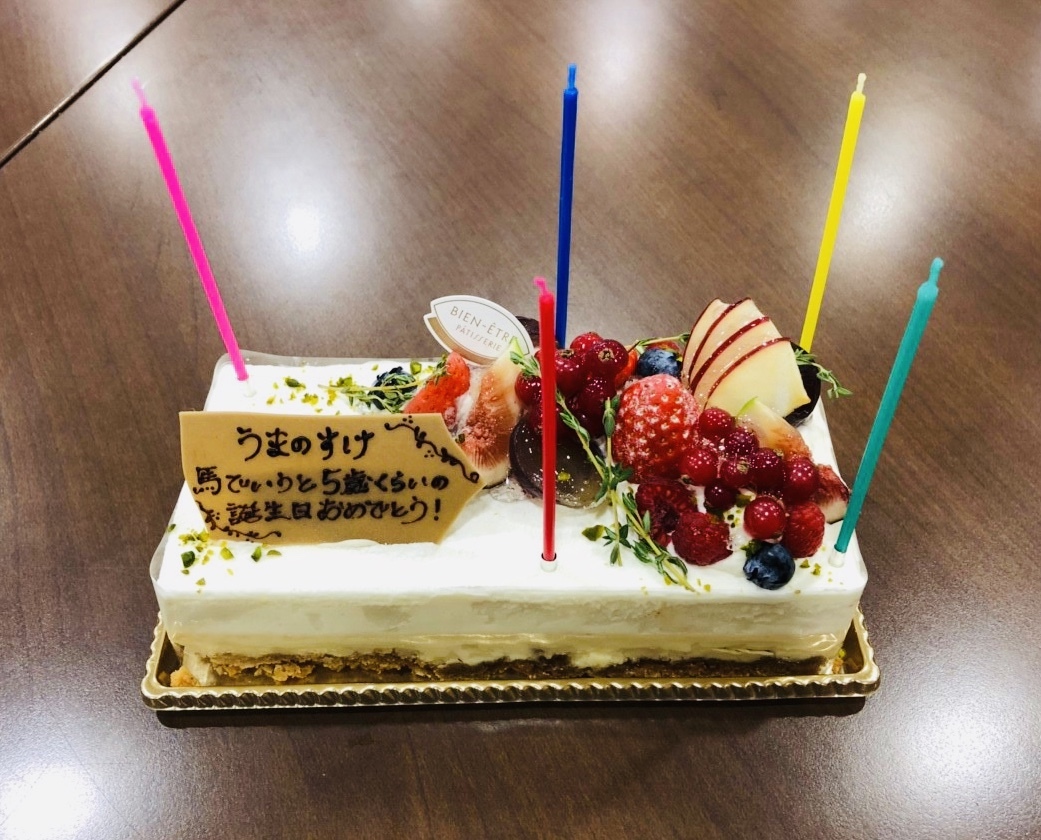 BIEN-ÊTRE
PATISSERIE
うまのすけ
馬でいうと5歳くらいの
お誕生日おめでとう!